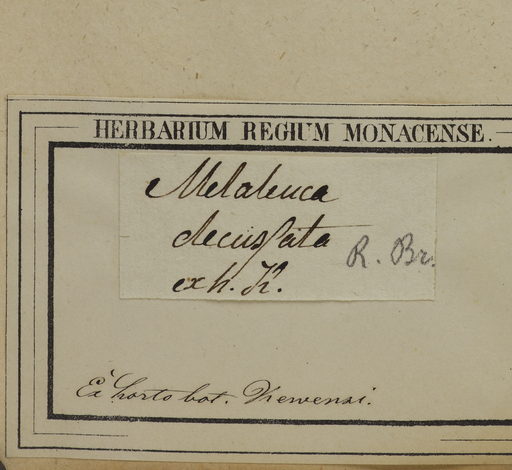 HERBARIUM REGIUM MONACENSE.
Melaleuca
decussata
R. Br.
ex h. K.
Ex horto bot. Kewensi.